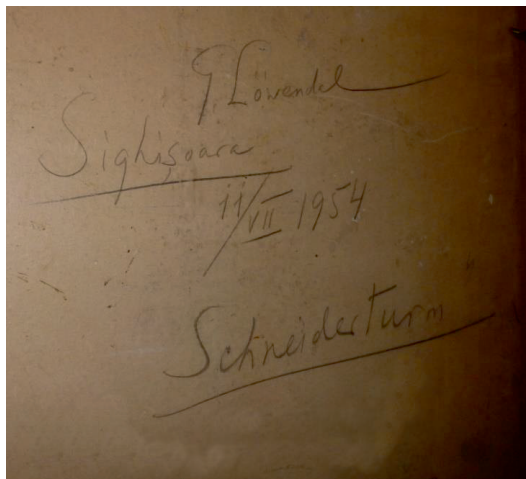 G Löwendal
Sighișoara
11/VII 1954
Schneiderturm